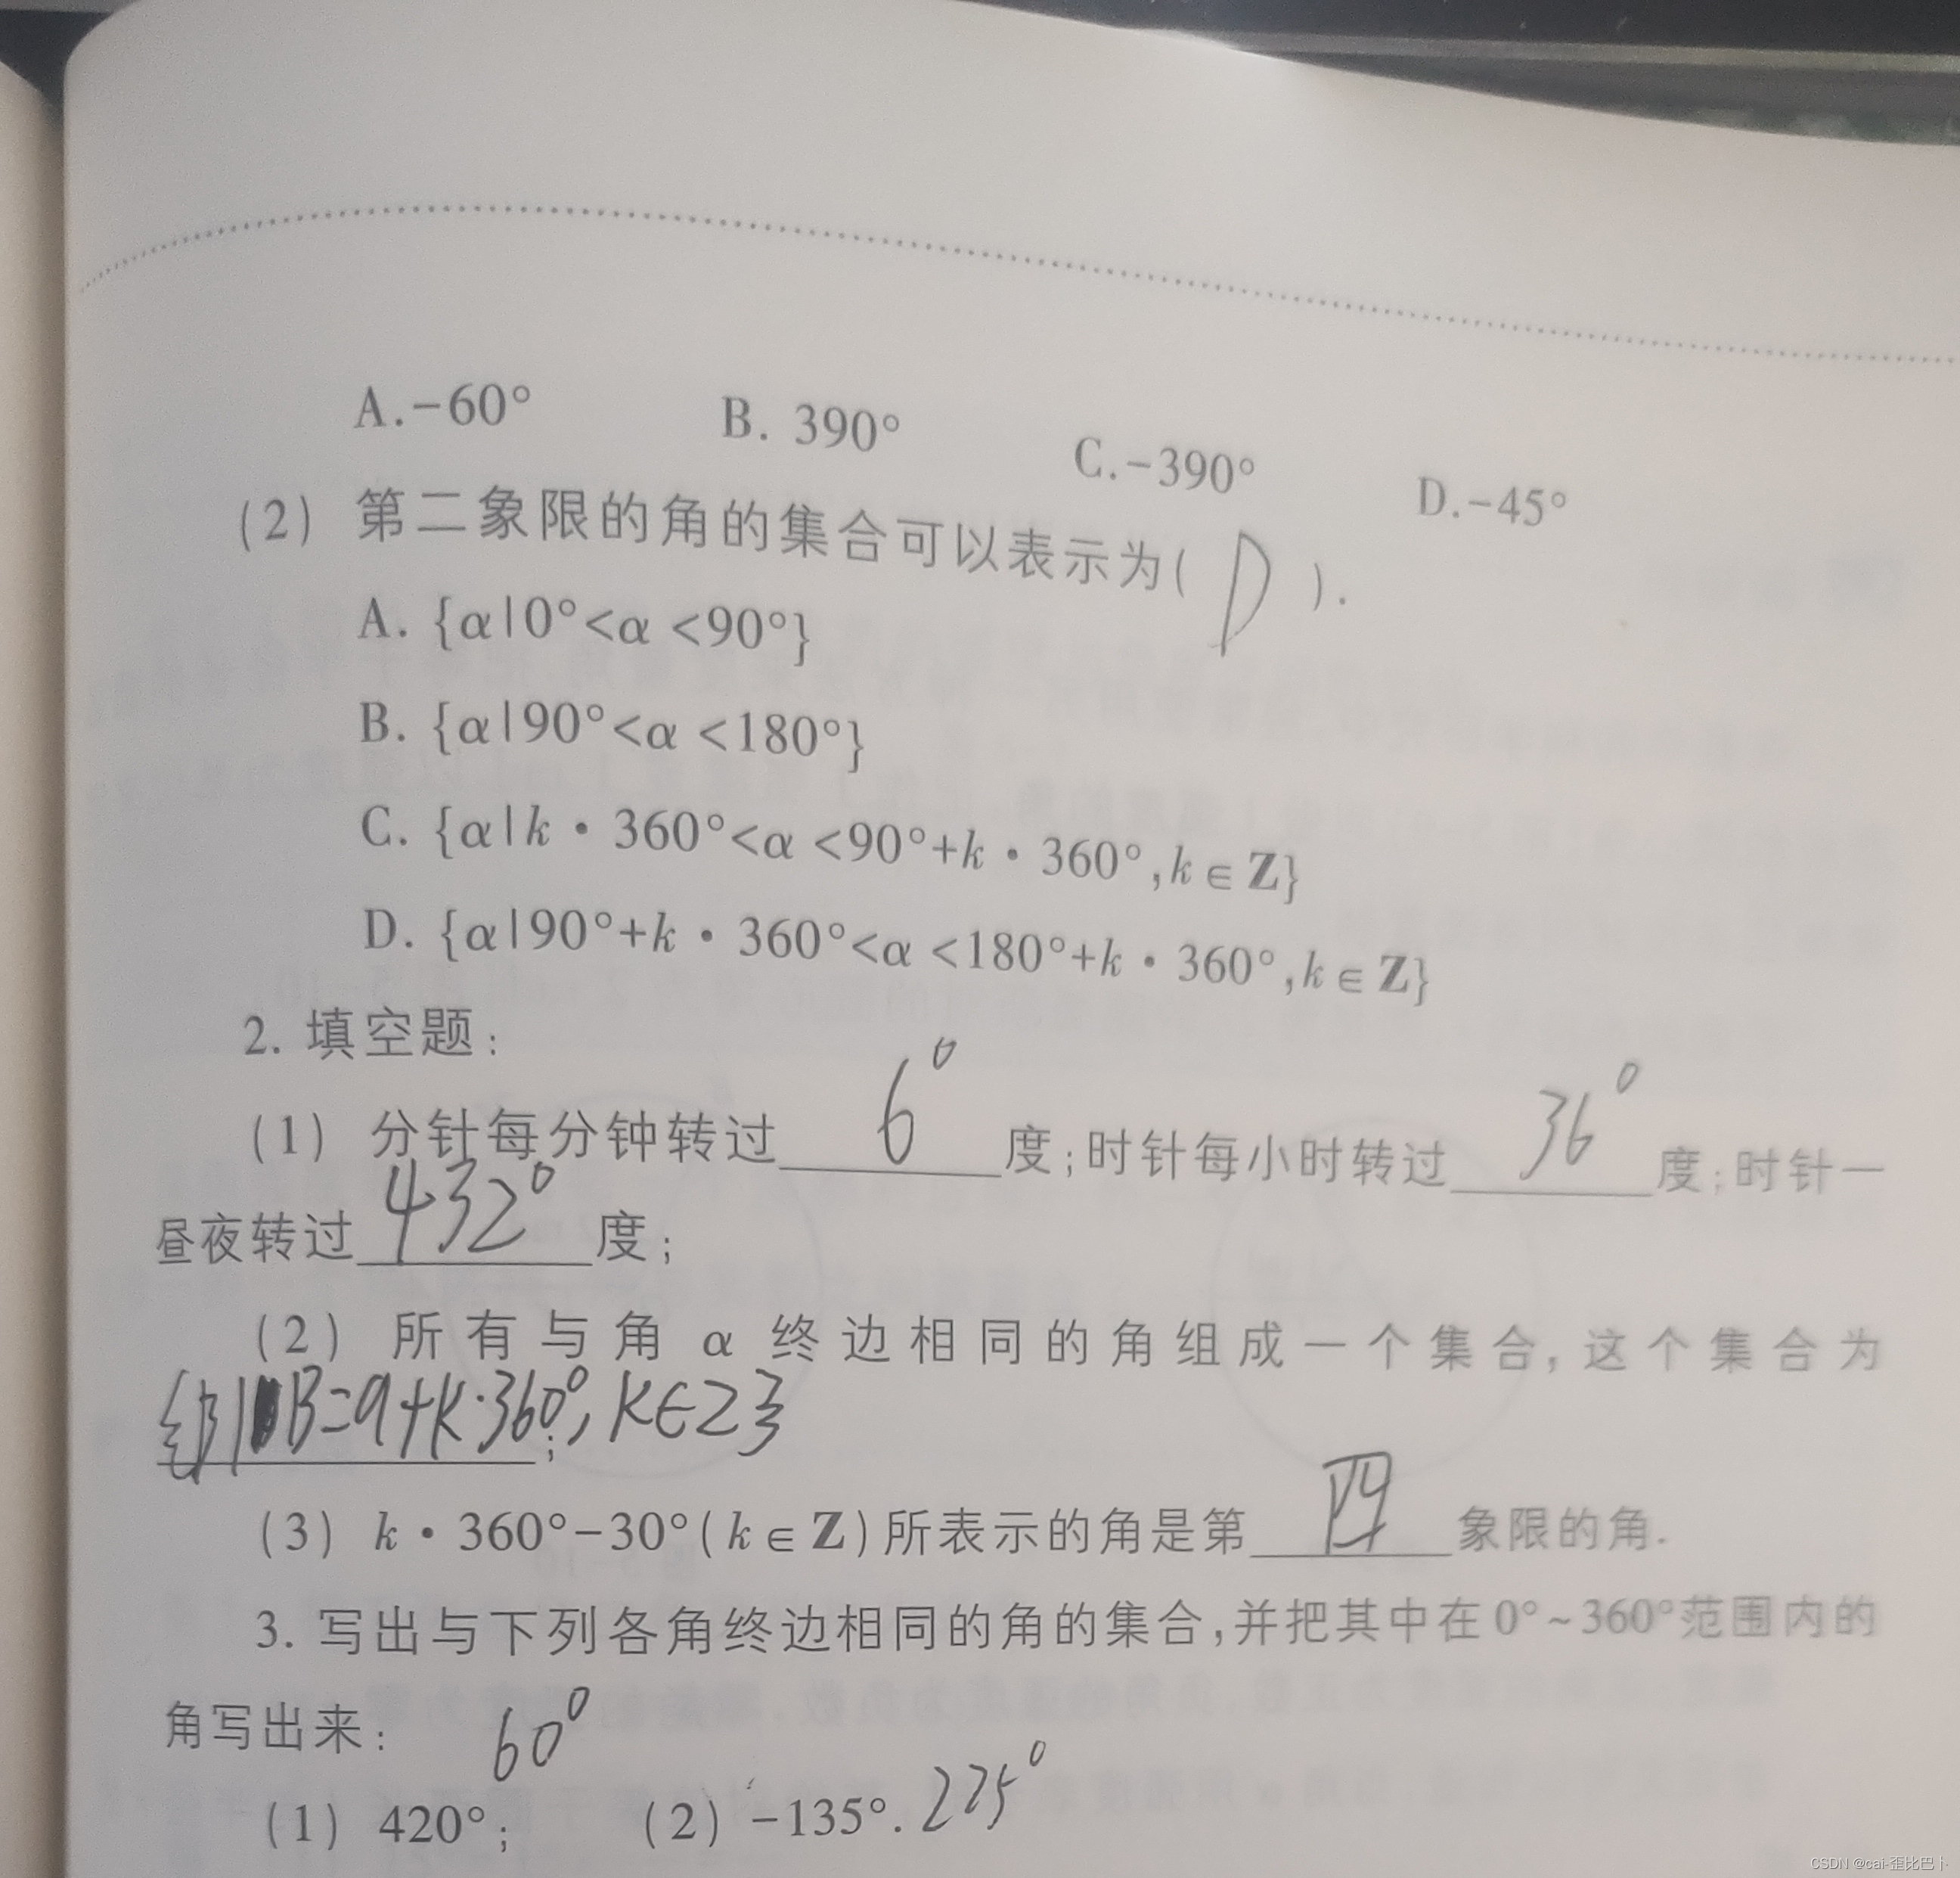 A.-60° B. 390° C.-390° D.-45°
(2) 第二象限的角的集合可以表示为( D ).
A. {α|0°<α<90°}
B. {α|90°<α<180°}
C. {α|k·360°<α<90°+k·360°,k∈Z}
D. {α|90°+k·360°<α<180°+k·360°,k∈Z}
2. 填空题:
(1) 分针每分钟转过 6° 度;时针每小时转过 36° 度;时针一
昼夜转过 432° 度;
(2) 所有与角 α 终边相同的角组成一个集合,这个集合为
{β|β=α+k·360°,k∈Z};
(3) k·360°-30°(k∈Z)所表示的角是第 四 象限的角.
3. 写出与下列各角终边相同的角的集合,并把其中在0°~360°范围内的
角写出来: 60°
(1) 420°; (2) -135°. 225°
CSDN @cai-歪比巴卜